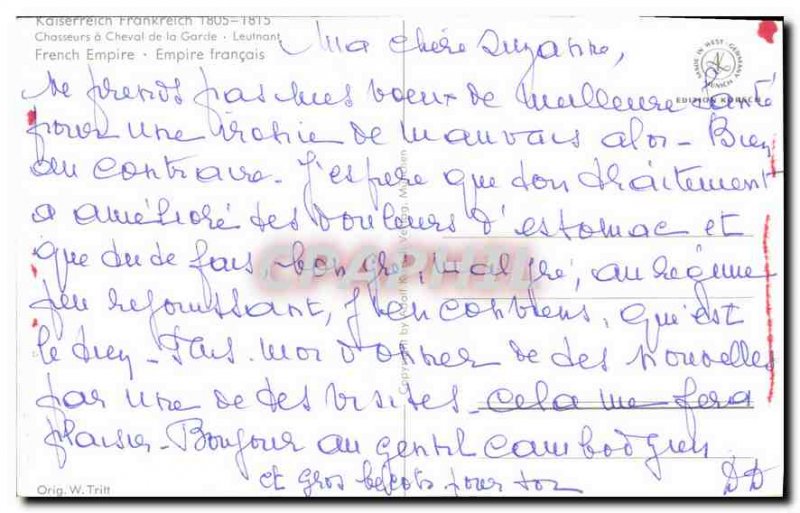 Kaiserreich Frankreich 1805-1815
Chasseurs à Cheval de la Garde · Leutnant
French Empire · Empire français
MADE IN WEST-GERMANY
MUNICH
EDITION KRÜGER
Ma chère Suzanne,
Ne prends pas mes voeux de meilleure santé
pour une ironie de mauvais aloi - Bien
au contraire - J'espère que ton traitement
a amélioré tes douleurs d'estomac et
que tu te fais, bon gré, mal gré, au régime
peu réjouissant, j'en conviens, qu'est
le tien - Fais-moi donner de tes nouvelles
par une de tes visites - cela me fera
plaisir - Bonjour au gentil cambodgien
et gros bécots pour toi
DD
CPAPHIL
Copyright by Adolf Verlag, München
Orig. W. Tritt